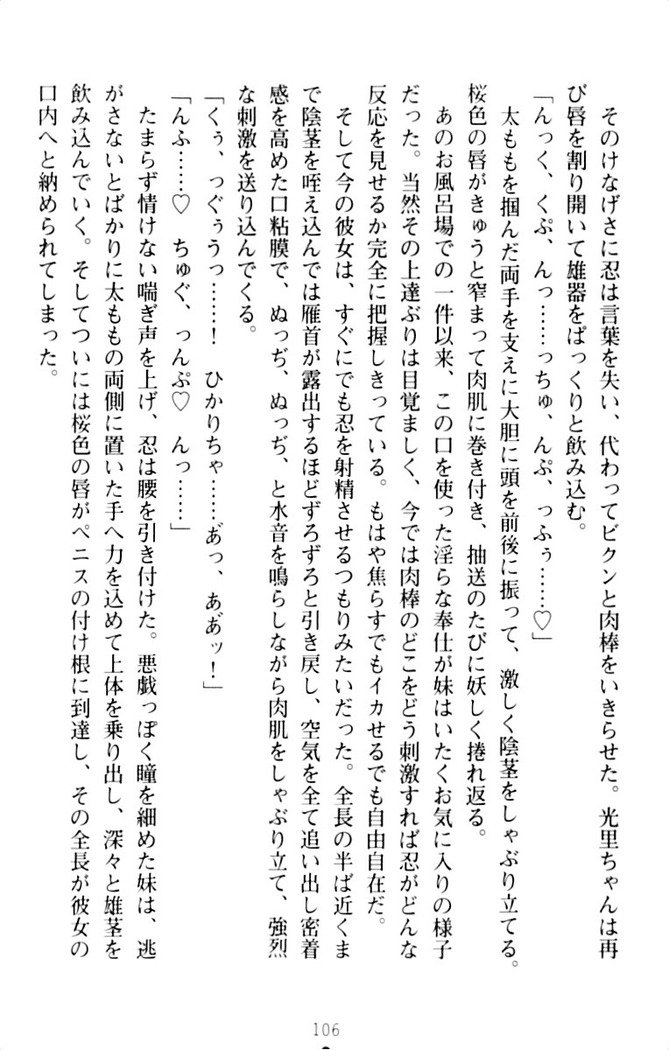 そのけなげさに忍は言葉を失い、代わってビクンと肉棒をいきらせた。光里ちゃんは再
び唇を割り開いて雄器をぱっくりと飲み込む。
「んっく、くぷ、んっ……っちゅ、んぷ、っふぅ……♡」
太ももを掴んだ両手を支えに大胆に頭を前後に振って、激しく陰茎をしゃぶり立てる。
桜色の唇がきゅうと窄まって肉肌に巻き付き、抽送のたびに妖しく捲れ返る。
あのお風呂場での一件以来、この口を使った淫らな奉仕が妹はいたくお気に入りの様子
だった。当然その上達ぶりは目覚ましく、今では肉棒のどこをどう刺激すれば忍がどんな
反応を見せるか完全に把握しきっている。もはや焦らすでもイカせるでも自由自在だ。
そして今の彼女は、すぐにでも忍を射精させるつもりみたいだった。全長の半ば近くま
で陰茎を咥え込んでは雁首が露出するほどずろずろと引き戻し、空気を全て追い出し密着
感を高めた口粘膜で、ぬっぢ、ぬっぢ、と水音を鳴らしながら肉肌をしゃぶり立て、強烈
な刺激を送り込んでくる。
「くぅ、っぐぅうっ……！　ひかりちゃ……あ゛っ、あ゛あ゛ッ！」
「んふ……♡　ちゅぐ、っんぷ♡　んっ……」
たまらず情けない喘ぎ声を上げ、忍は腰を引き付けた。悪戯っぽく瞳を細めた妹は、逃
がさないとばかりに太ももの両側に置いた手へ力を込めて上体を乗り出し、深々と雄茎を
飲み込んでいく。そしてついには桜色の唇がペニスの付け根に到達し、その全長が彼女の
口内へと納められてしまった。
106